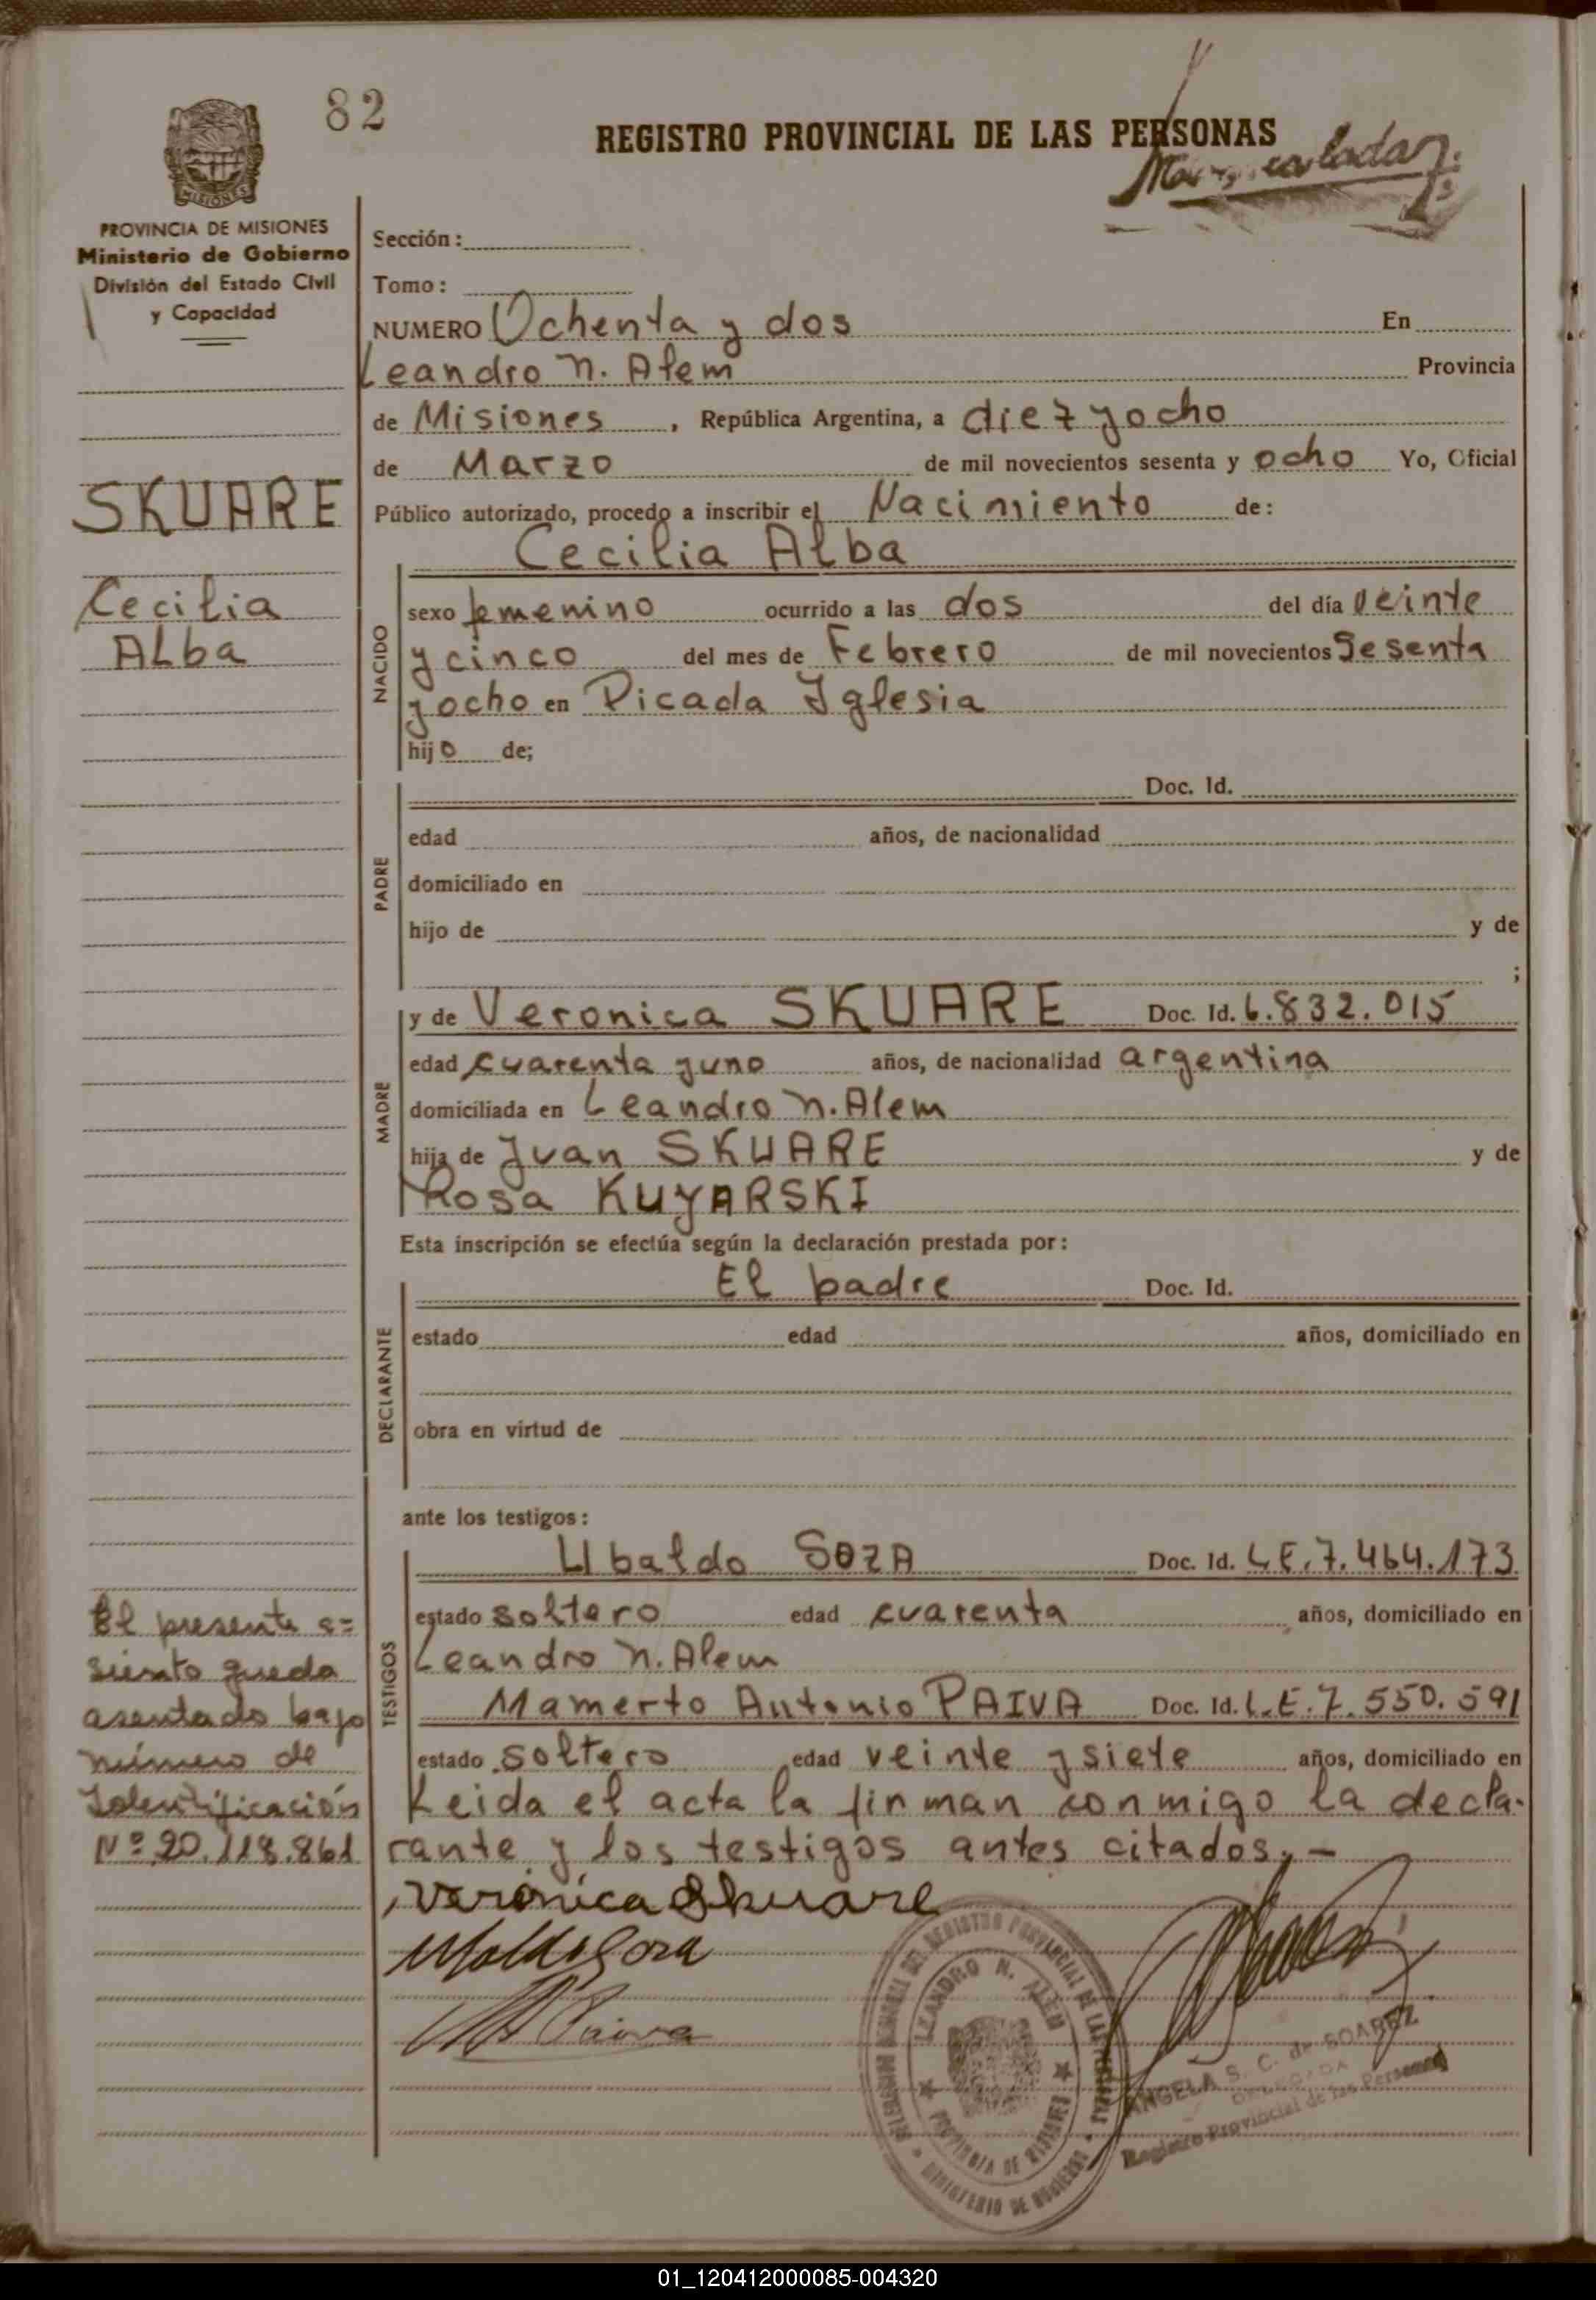 82
REGISTRO PROVINCIAL DE LAS PERSONAS
MISIONES
PROVINCIA DE MISIONES
Ministerio de Gobierno
División del Estado Civil
y Capacidad
SKUARE
Cecilia
Alba
Sección:
Tomo:
NUMERO Ochenta y dos En
Leandro N. Alem Provincia
de Misiones, República Argentina, a diez y ocho
de Marzo de mil novecientos sesenta y ocho Yo, Oficial
Público autorizado, procedo a inscribir el Nacimiento de:
Cecilia Alba
NACIDO
sexo femenino ocurrido a las dos del día veinte
y cinco del mes de Febrero de mil novecientos Sesenta
y ocho en Picada Iglesia
hijo de;
PADRE
Doc. Id.
edad años, de nacionalidad
domiciliado en
hijo de y de
;
MADRE
y de Veronica SKUARE Doc. Id. 6.832.015
edad cuarenta y uno años, de nacionalidad argentina
domiciliada en Leandro N. Alem
hija de Juan SKUARE y de
Rosa KUYARSKI
Esta inscripción se efectúa según la declaración prestada por:
DECLARANTE
El badre Doc. Id.
estado edad años, domiciliado en
obra en virtud de
ante los testigos:
TESTIGOS
Ubaldo SOZA Doc. Id. L.E.7.464.173
estado soltero edad cuarenta años, domiciliado en
Leandro N. Alem
Mamerto Antonio PAIVA Doc. Id. L.E.7.550.591
estado soltero edad veinte y siete años, domiciliado en
Leida el acta la firman conmigo la decla-
rante y los testigos antes citados.-
El presente a=
siento queda
asentado bajo
número de
Identificación
Nº 20.118.861
Veronica Skuare
Ubaldo Soza
Paiva
LEANDRO N. ALEM
PROVINCIA DE MISIONES
MINISTERIO DE GOBIERNO
ANGELA S. C. de SOAREZ
DELEGADA
Registro Provincial de las Personas
01_120412000085-004320